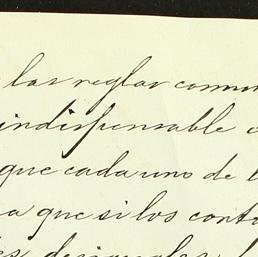 las reglas comun
indispensable
que cada uno de l
a que si los conta
es desiguales